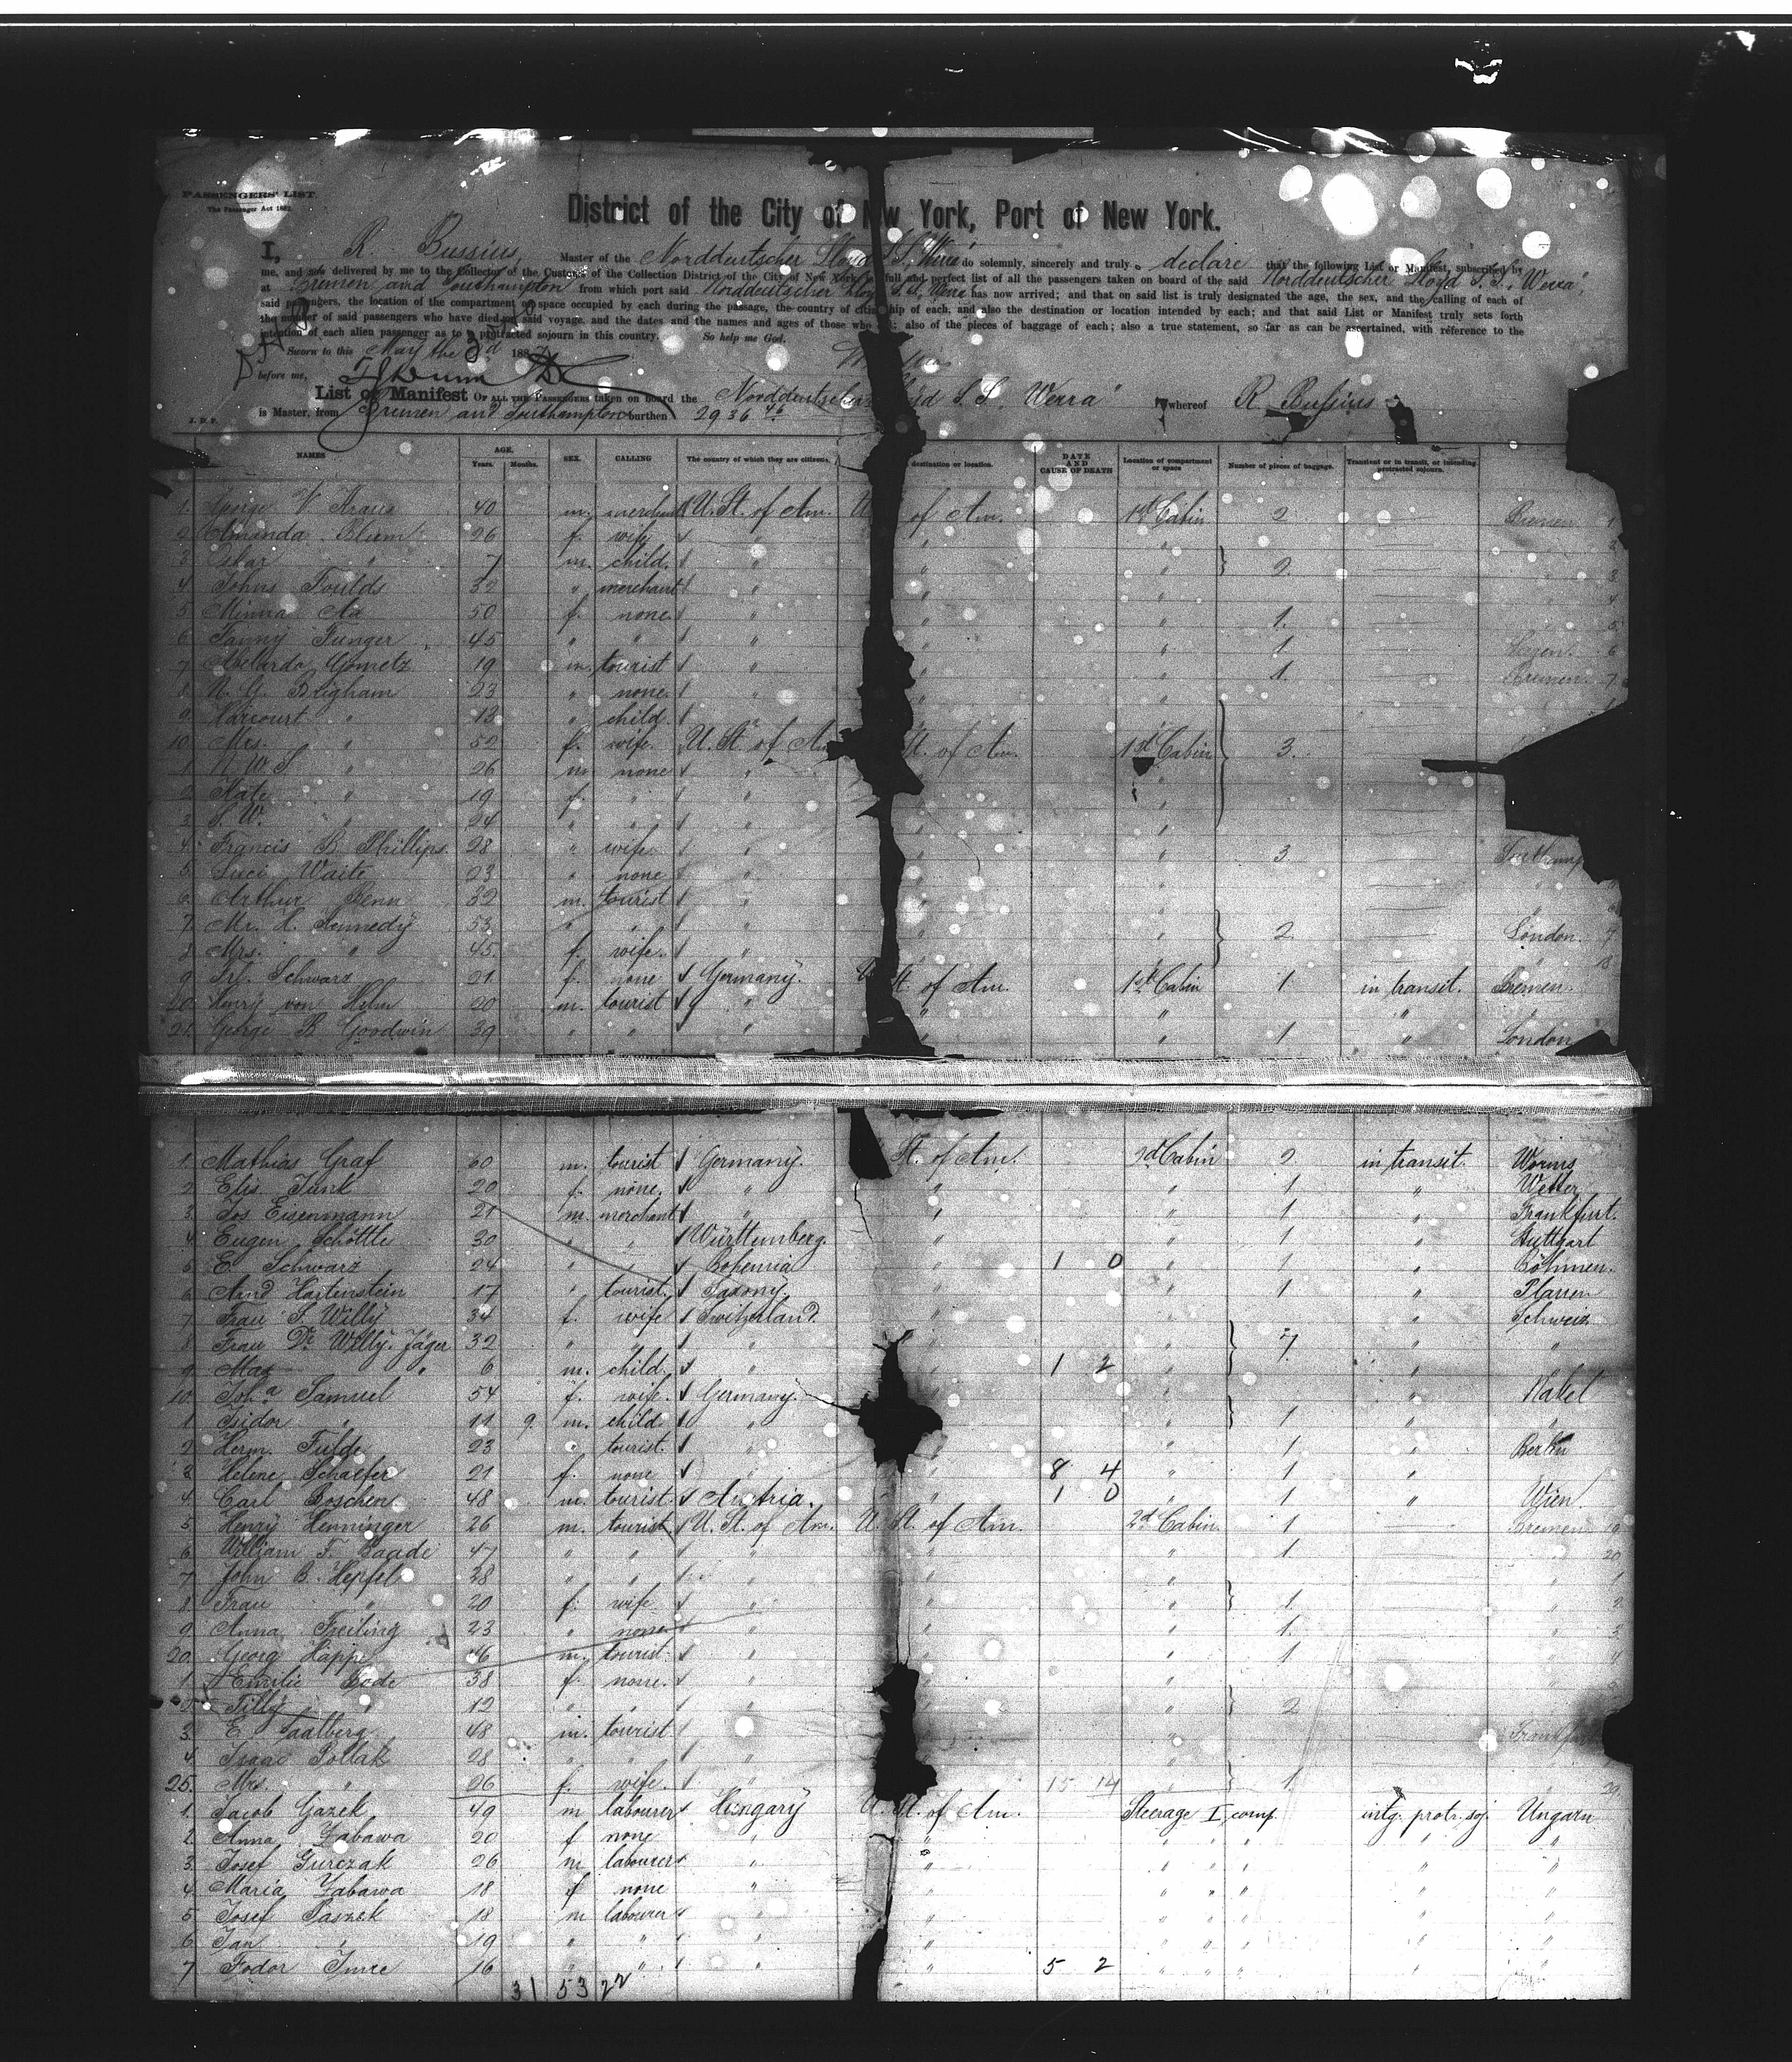 PASSENGERS' LIST.
The Passenger Act 1882.
District of the City of New York, Port of New York.
I, R. Bussius, Master of the Norddeutscher Lloyd S.S. Werra do solemnly, sincerely and truly declare that the following List or Manifest, subscribed by
me, and now delivered by me to the Collector of the Customs of the Collection District of the City of New York, is a full and perfect list of all the passengers taken on board of the said Norddeutscher Lloyd S.S. Werra,
at Bremen and Southampton from which port said Norddeutscher Lloyd S.S. Werra has now arrived; and that on said list is truly designated the age, the sex, and the calling of each of
said passengers, the location of the compartment or space occupied by each during the passage, the country of citizenship of each, and also the destination or location intended by each; and that said List or Manifest truly sets forth
the number of said passengers who have died on said voyage, and the dates and the names and ages of those who ; also of the pieces of baggage of each; also a true statement, so far as can be ascertained, with reference to the
intention of each alien passenger as to a protracted sojourn in this country. So help me God.
Sworn to this May the 3d 188
before me,
List or Manifest OF ALL THE PASSENGERS taken on board the Norddeutscher Lloyd S.S. Werra whereof R. Bussius
is Master, from Bremen and Southampton burthen 2936
NAMES AGE. Years. Months. SEX. CALLING The country of which they are citizens. destination or location. DATE AND CAUSE OF DEATH Location of compartment or space Number of pieces of baggage. Transient or in transit, or intending protracted sojourn.
1. George V Kraus 40 m. merchant U. St. of Am. U of Am. 1st Cabin 2 Bremen 1
2 Amanda Blum 26 f. wife " " "
3 Oskar " 7 m. child. " " " 2. 3
4 Johns Foulds 32 " merchant " " " 4
5 Minna Ad 50 f. none. " " " 1. 5
6 Fanny Funger 45 " " " " " 1 6
7 Abelardo Gometz 19 m. tourist " " " 1. Bremen 7
8 N. G. Brigham 23 " none. " "
9 Harcourt " 13 " child. "
10. Mrs. " 52 f. wife U. St. of Am St. of Am. 1st Cabin 3.
1 N. W. S " 26 m none " "
2 Kate " 19 f. " " "
3 S. W. " 24 " " " "
4 Francis B. Phillips 28 " wife " " " 3
5 Luci Waite 23 " none " " "
6. Arthur Benn 32 m. tourist " " "
7. Mr. H. Kennedy 53 " " " " " 2 London. 7
8 Mrs. " 45. f. wife. " " " " 18
9 Frl. Schwarz 21. f. none Germany. U St. of Am. 1st Cabin 1 in transit. Bremen.
20. Henry von Helm 20 m. tourist " " " "
21. George B Goodwin 39 " " " " " 1 " London
1. Mathias Graf 60 m. tourist Germany. St. of Am. 2d Cabin 2 in transit Worms
2 Elis Junk 20 f. none. " " " 1 " Wetter
3. Jos Eisenmann 21 m. merchant " " " 1 " Frankfurt.
4 Eugen Schöttle 30 " " Württemberg. " " 1 " Stuttgart
5 E. Schwarz 24 " " Bohemia " 1 0 " 1 " Böhmen.
6 Arnd Hartenstein 17 " tourist. Saxony. " " 1 " Plauen
7 Frau S. Willy 34 f. wife Switzerland. " " Schweiz
8 Frau Dr. Willy-Jäger 32 " " " " " 7 " "
9 Max " 6 m. child. " " 1 2 " " "
10. Joha Samuel 54 f. wife. Germany. " " " Nakel
1 Isidor " 11 9. m. child. " " " 1 " "
2 Herm. Fulde 23 " tourist. " " " 1 " Berlin
3. Helene Schaefer 21 f. none " " 8 4 " 1 "
4. Carl Boschen 48 m. tourist. Austria. " 1 0 " 1 " Wien.
5. Henry Henninger 26 m. tourist U. St. of Am. U. St. of Am. 2d Cabin. 1 Bremen 19
6. William F. Baade 47 " " " " " 1. " 20
7 John B. Hepfel 28 " " " " " "
8 Frau " 20 f. wife " " " 1. " 2
9. Anna Freiling 23 " none. " " 1. " 3
20. Georg Happ 46 m. tourist. " " 1 " 4
1 Emilie Bode 38 f. none. "
2 Tilly " 12 " " " 2
3. E. Saalberg 48 m. tourist " Frankfurt
4. Isaac Pollak 28 " " "
25. Mrs. " 26 f. wife. " 15 14 1. " 29
1. Jacob Gazek 49 m labourer Hungary U. St. of Am. Steerage I comp. intg. protr. soj. Ungarn
2 Anna Zabawa 20 f none " " " " " " "
3. Josef Gurczak 26 m labourer " " " " " " "
4 Maria Zabawa 18 f none " " " " " " "
5 Josef Paszek 18 m labourer " " " " " " "
6 Jan " 19 " " " " " " " " "
7 Fodor Imre 16 " " " " 5 2 " " " " "
31 53 22